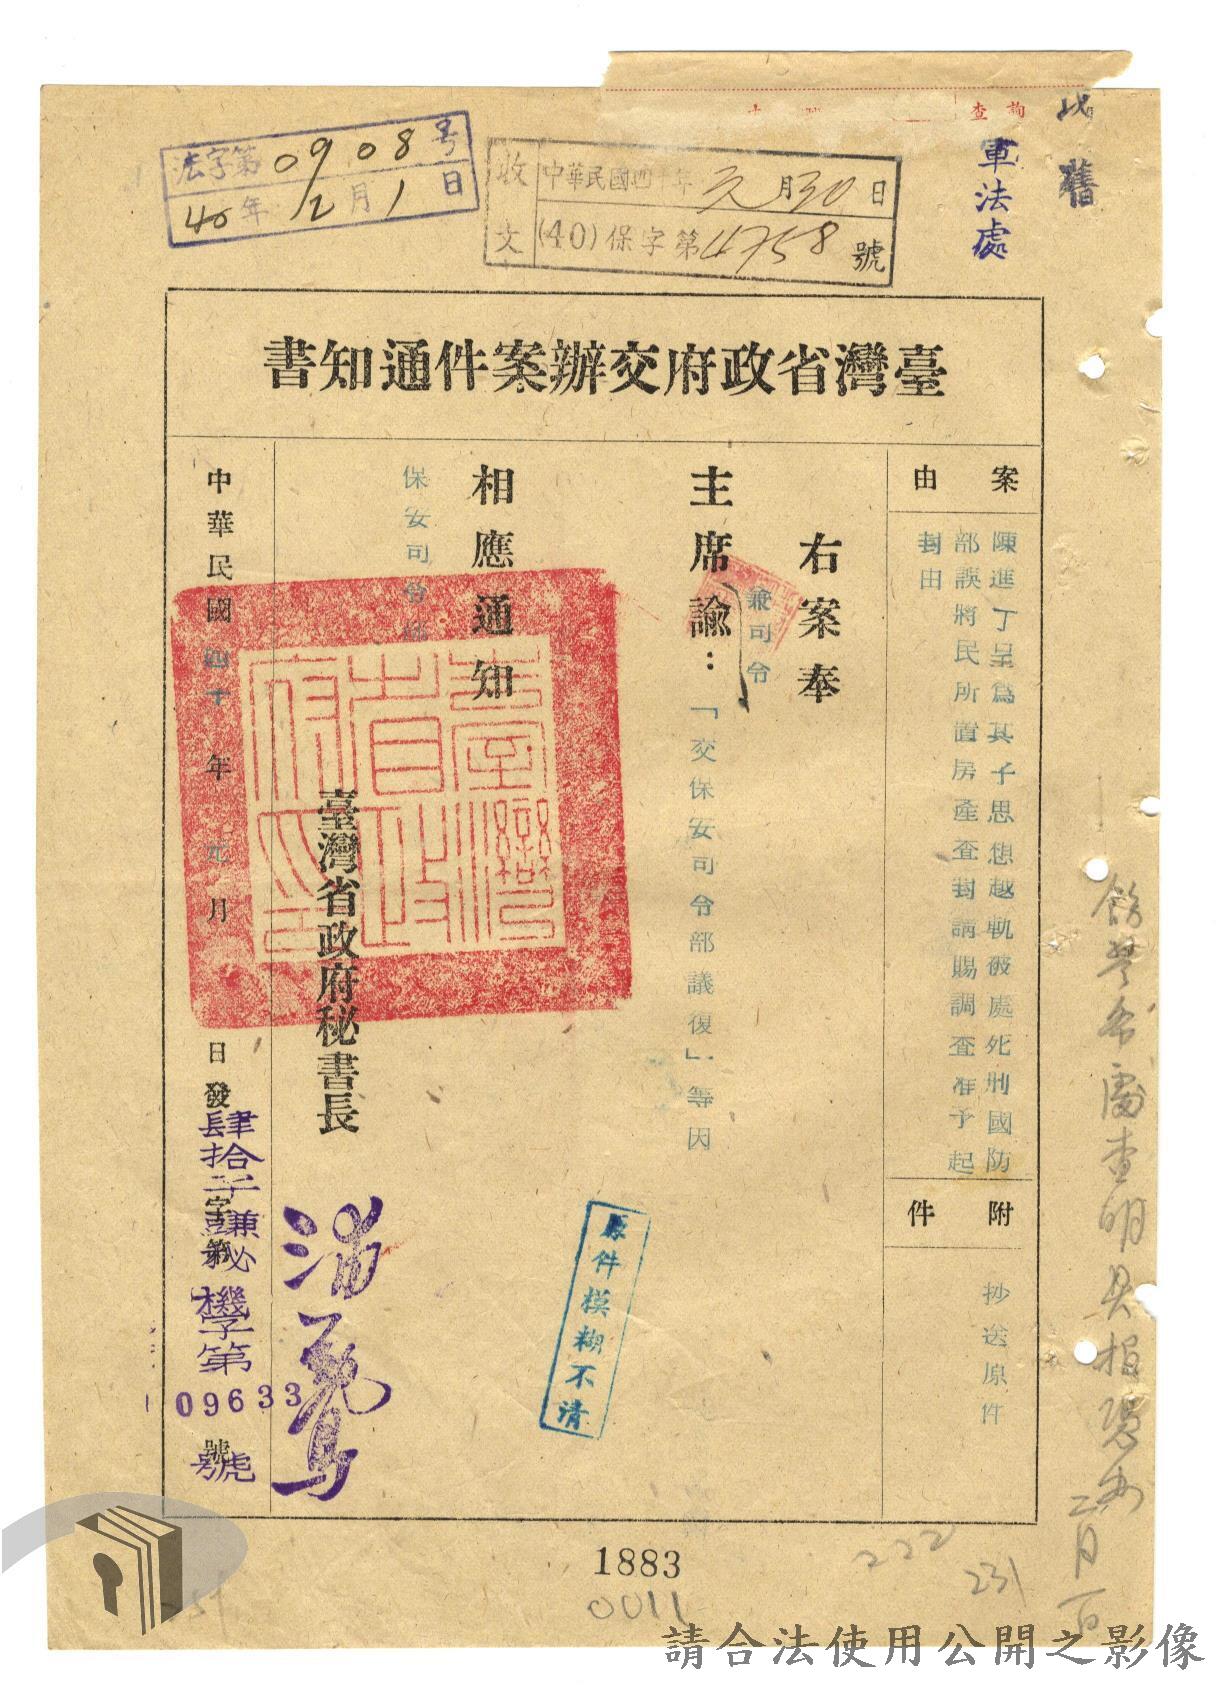 查詢
軍法處
法字第0908号
40年2月1日
收文
中華民國四十年元月30日
(40)保字第4758號
臺灣省政府交辦案件通知書
案由
陳進丁呈為其子思想越軌被處死刑國防
部誤將民所置房產查封請賜調查准予起
封由
附件
抄送原件
右案奉
兼司令
主席諭：「交保安司令部議復」等因
相應通知
保安司令部
臺灣省政府秘書長
浦薛鳳
中華民國四十年元月日發
字第號
肆拾子謙秘機字第
09633
號
臺灣省政府印
原件模糊不清
1883
0011
222
231
請合法使用公開之影像